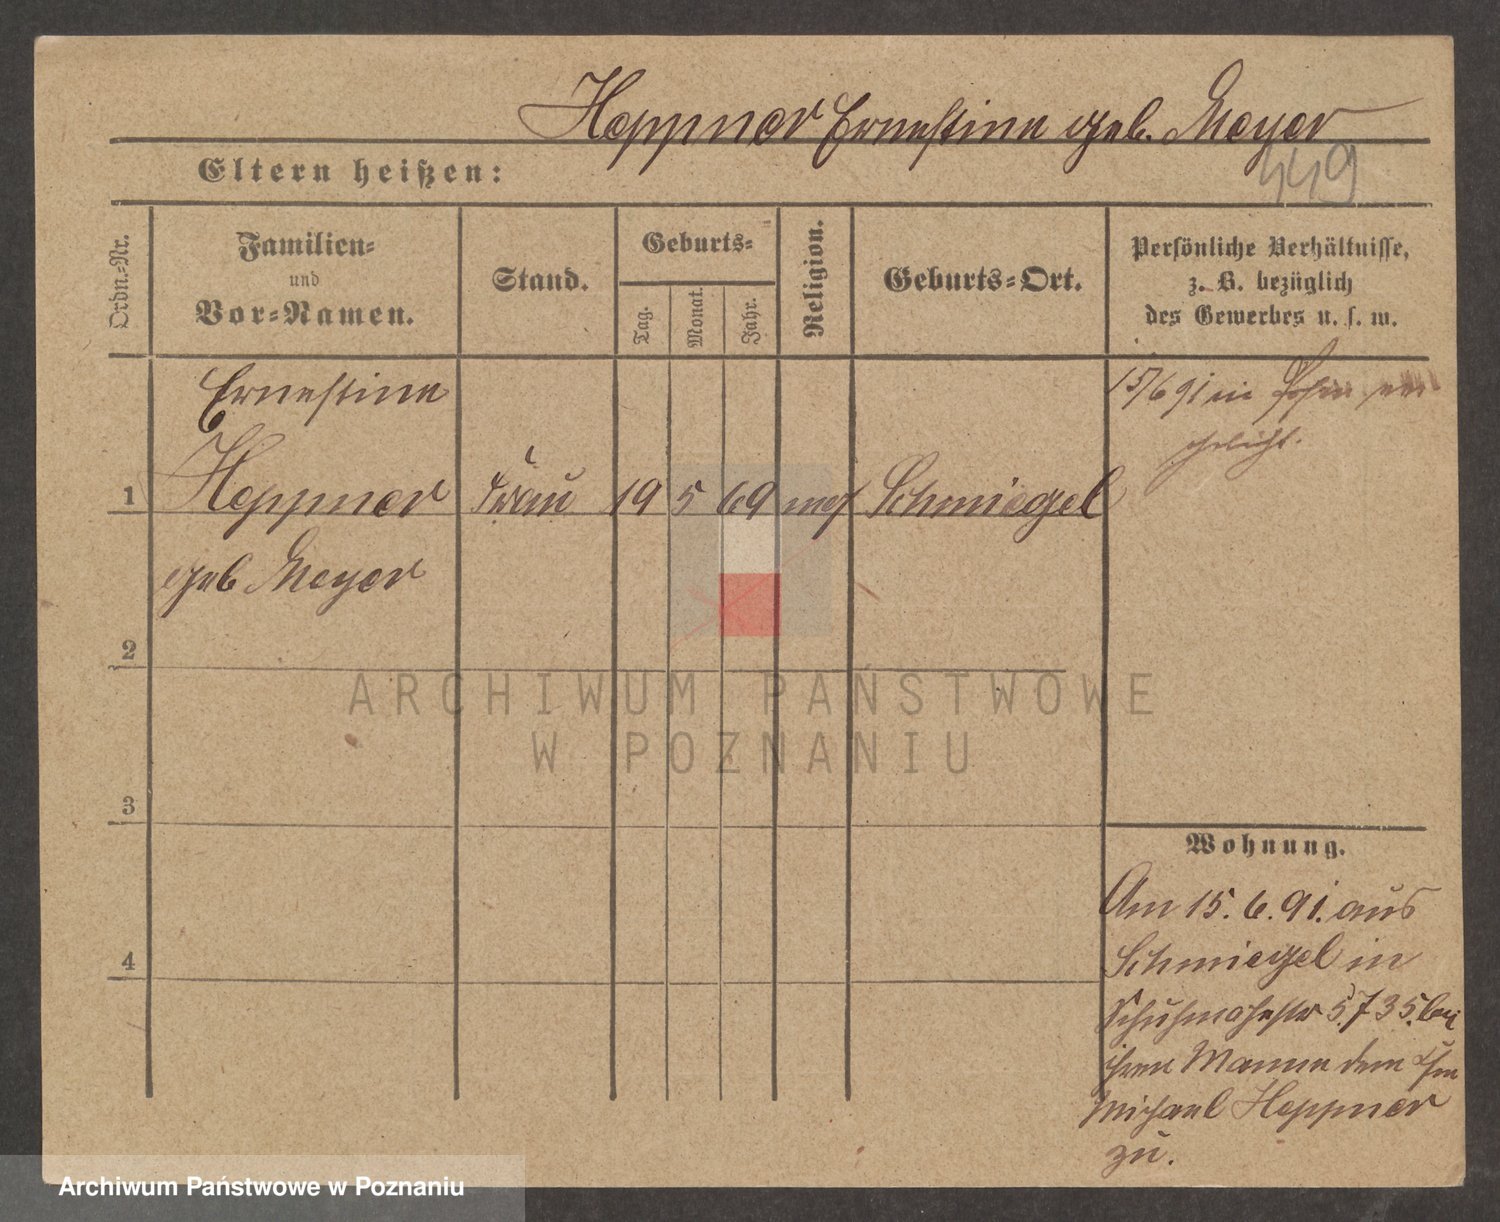 Heppner Ernestine geb. Meyer
449
Eltern heißen:
Ordn.-Nr.
Familien-
und
Vor-Namen.
Stand.
Geburts-
Tag.
Monat.
Jahr.
Religion.
Geburts-Ort.
Persönliche Verhältnisse,
z. B. bezüglich
des Gewerbes u. s. w.
Ernestine
1 Heppner Frau 19 5 69 mos Schmiegel
geb Meyer
15/6 91 in Posen ver
ehelicht.
2
3
4
Wohnung.
Am 15. 6. 91. aus
Schmiegel in
5735. bei
ihren Manne dem
Michael Heppner
zu.
ARCHIWUM PAŃSTWOWE
W POZNANIU
Archiwum Państwowe w Poznaniu